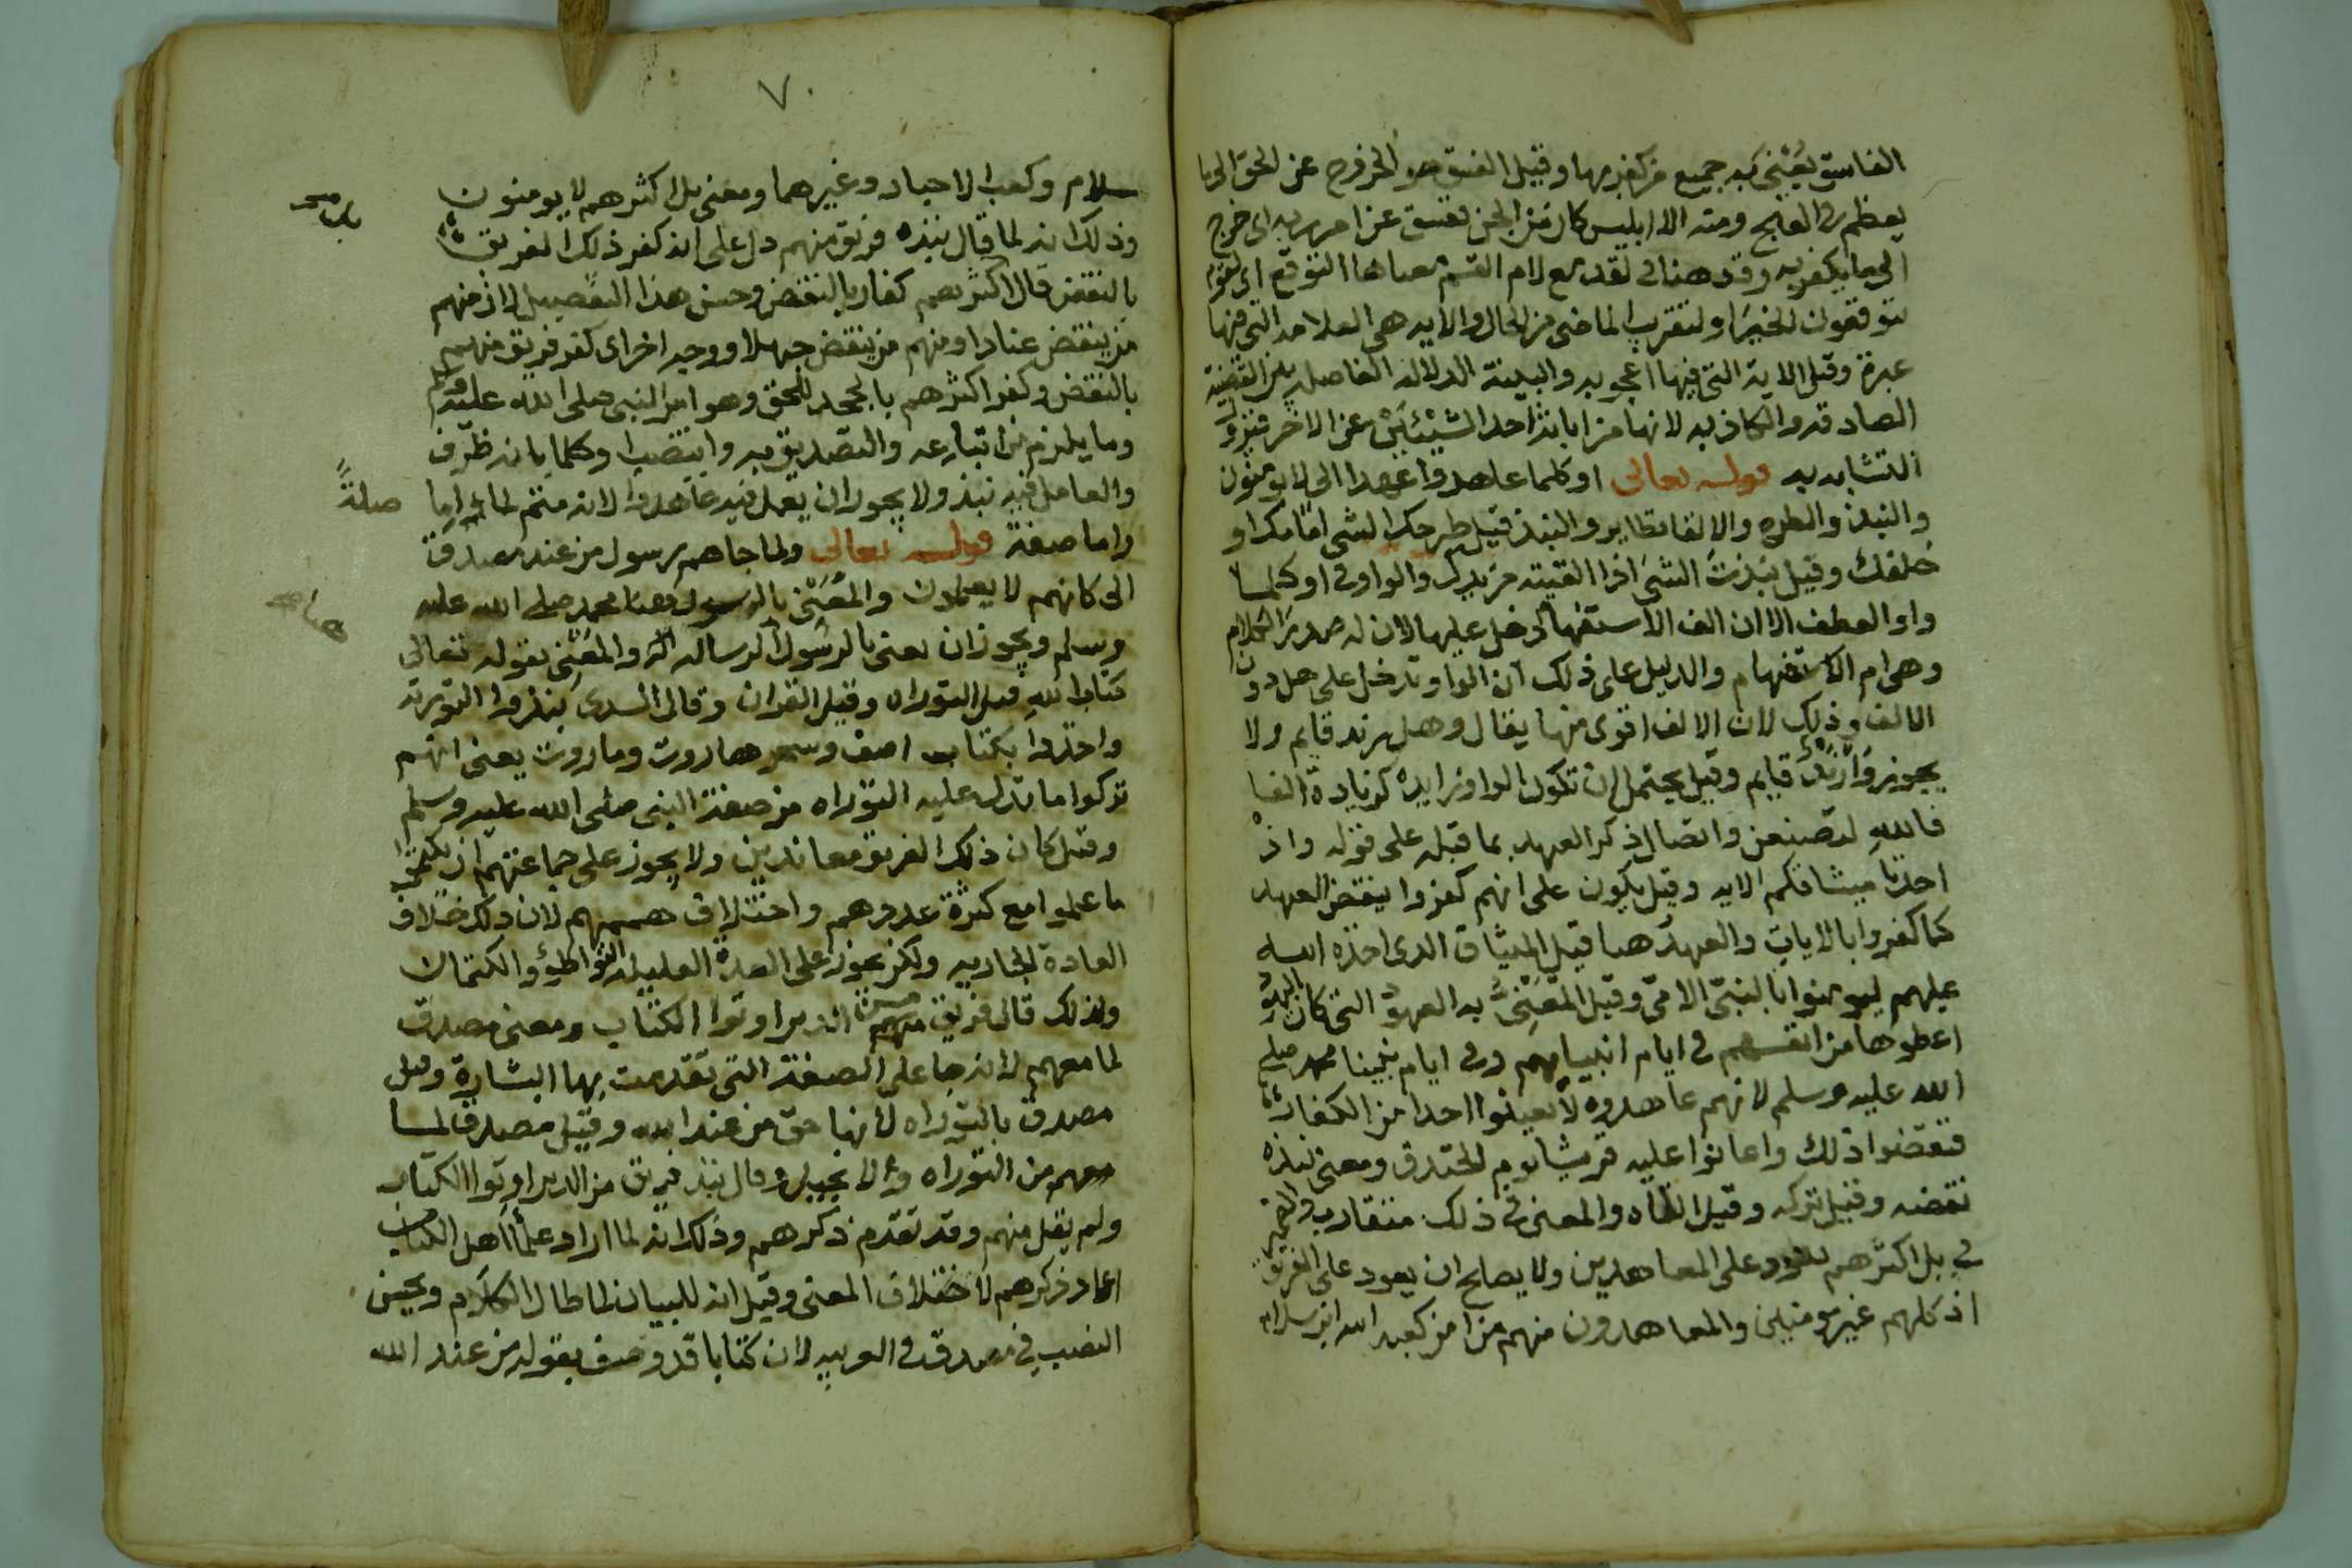 الفاسق يُعْنَى به جميع من كفر بها وقيل الفسق هو الخروج عن الحق الى ما
يعظم من القبح ومنه الا ابليس كان من الجن ففسق عن امر ربه اى خرج
الى ما يكفر به وقد هنا فى لقد مع لام القسم معناها التوقع اى لقوم
يتوقعون الخبر او لتقريب الماضى من الحال والايه هى العلامه التى فيها
عبرة وقيل الاية التى فيها اعجوبه والبينة الدلاله الفاصله بين القضية
الصادقه والكاذبه لانها من ابانة احد الشيئين عن الاخر فيزول
التشابه به قوله تعالى او كلما عاهدوا عهدا الى لا يومنون
والنبذ والطرح والالقا نظاير والنبذ قيل طرحك الشى امامك او
خلفك وقيل نبذت الشى اذا القيته من يدك والواو فى او كلما
واو العطف الا ان الف الاستفهام دخل عليها لان له صدر الكلام
وهى ام الاستفهام والدليل على ذلك ان الواو تدخل على هل دون
الالف وذلك لان الالف اقوى منها يقال وهل زيد قايم ولا
يجوز وَأَزَيْدٌ قايم وقيل يحتمل ان تكون الواو زايدة كزيادة الفا
فالله لتصنعن واتصال ذكر العهد بما قبله على قوله واذ
اخذنا ميثاقكم الايه وقيل يكون على انهم كفروا بنقض العهد
كما كفروا بالايات والعهد هنا قيل الميثاق الذى اخذه الله
عليهم ليومنوا بالنبى الامى وقيل المَعْنِىُّ به العهود التى كان اليهود
اعطوها من انفسهم فى ايام انبيايهم وفى ايام نبينا محمد صلى
الله عليه وسلم لانهم عاهدوه لا يعينوا احدا من الكفار
فنقضوا ذلك واعانوا عليه قريشا يوم الخندق ومعنى نبذه
نقضه وقيل تركه وقيل القاه والمعنى فى ذلك متقارب والضمير
فى بل اكثرهم يعود على المعاهدين ولا يصلح ان يعود على الفريق
اذ كلهم غير مومنين والمعاهدون منهم من امن كعبد الله ابن سلام
٧٠
سلام وكعب الاحبار وغيرهما ومعنى بل اكثرهم لا يومنون
وذلك انه لما قال نبذه فريق منهم دل على انه كفر ذلك الفريق
بالنقض قال اكثرهم كفار بالنقض وحسن هذا التفصيل لان منهم
من ينقض عنادا ومنهم من ينقض جهلا ووجه اخر اى كفر فريق منهم
بالنقض وكفر اكثرهم بالجحد للحق وهو امر النبى صلى الله عليه وسلم
وما يلزم من اتباعه والتصديق به وانتصب او كلما بانه ظرف
والعامل فيه نبذ ولا يجوز ان يعمل فيه عاهدوا لانه متمم لما اما
صلةً
واما صفة قوله تعالى ولما جاهم رسول من عند مصدق
الى كانهم لا يعلمون والمَعْنِى بالرسول هنا محمد صلى الله عليه
وسلم ويجوز ان يعنى بالرسول الرساله والمعنى بقوله تعالى
كتاب الله قيل التوراه وقيل القران وقال السدى نبذوا التورية
واخذوا بكتاب اصف وسحر هاروت وماروت يعنى انهم
تركوا ما تدل عليه التوراه من صفة النبى صلى الله عليه وسلم
وقيل كان ذلك الفريق معاندين ولا يجوز على جماعتهم ان يكتموا
ما علموا مع كثرة عددهم واختلاف هممهم لان ذلك خلاف
العادة الجاريه ولكن يجوز على العدة القليله التواطؤ والكتمان
ولذلك قال فريق من الذين اوتوا الكتاب ومعنى مصدق
لما معهم لانه جا على الصفة التى تقدمت بها البشارة وقيل
مصدق بالتوراه لانها حق من عند الله وقيل مصدق لما
معهم من التوراه والانجيل وقال نبذ فريق من الذين اوتوا الكتاب
ولم يقل منهم وقد تقدم ذكرهم وذلك انه لما اراد علما اهل الكتاب
اعاد ذكرهم لاختلاف المعنى وقيل انه للبيان لما طال الكلام ويحسن
النصب فى مصدق فى العربيه لان كتابا قد وصف بقوله من عند الله